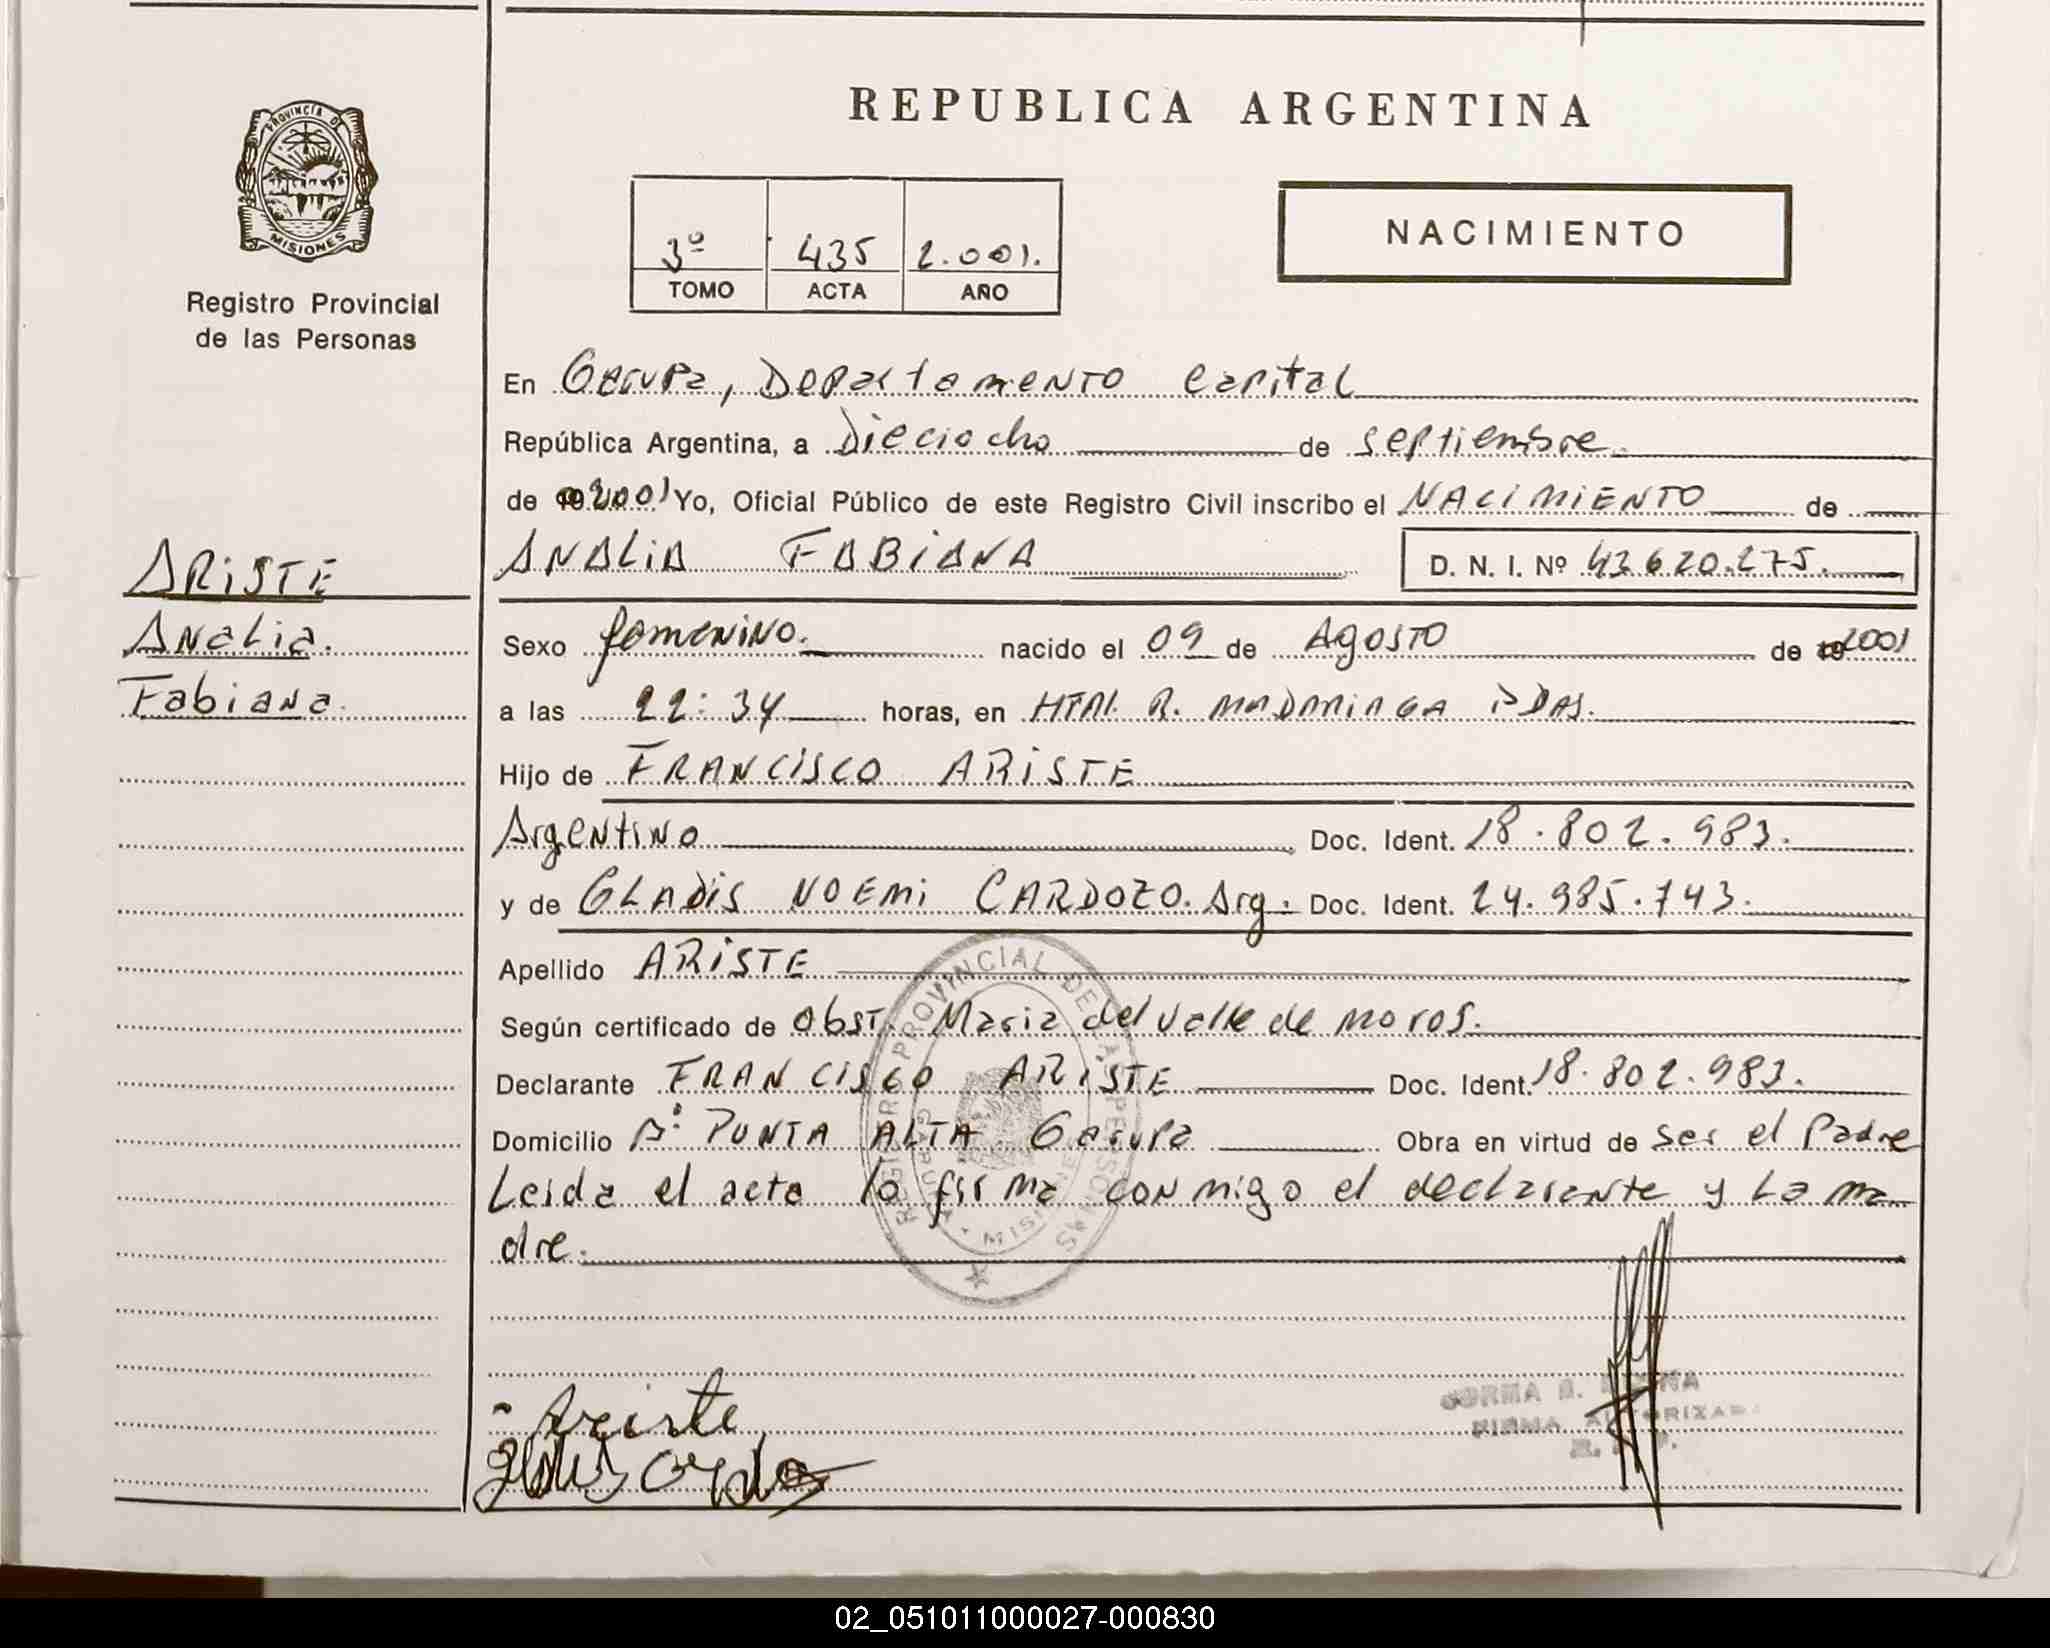 REPUBLICA ARGENTINA
PROVINCIA DE
MISIONES
Registro Provincial
de las Personas
3º 435 2.001.
TOMO ACTA AÑO
NACIMIENTO
En Garupa, Departamento Capital
República Argentina, a Dieciocho de septiembre.
de 2001 Yo, Oficial Público de este Registro Civil inscribo el NACIMIENTO de
ARISTE
Analia.
Fabiana.
ANALIA FABIANA D. N. I. Nº 43.620.275.
Sexo femenino. nacido el 09 de Agosto de 2001
a las 22:34 horas, en R. MADARIAGA PDAS.
Hijo de FRANCISCO ARISTE
Argentino Doc. Ident. 18.802.983.
y de GLADIS NOEMI CARDOZO. Arg. Doc. Ident. 24.985.743.
Apellido ARISTE
Según certificado de Obst. Maria del Valle de Moros.
Declarante FRANCISCO ARISTE Doc. Ident. 18.802.983.
Domicilio Bº PUNTA ALTA Garupa Obra en virtud de ser el Padre
Leida el acta la firma conmigo el declarante y La ma
dre.
REGISTRO PROVINCIAL DE LAS PERSONAS
GARUPA
MISIONES
Ariste
FIRMA AUTORIZADA
02_051011000027-000830